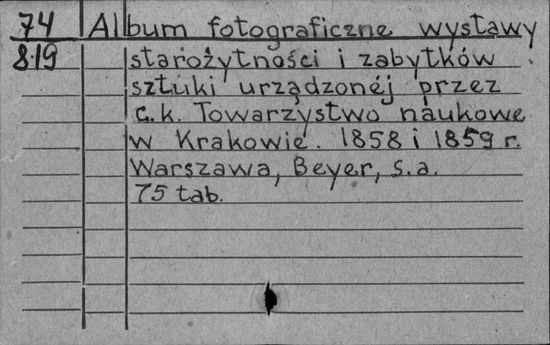 74 Album fotograficzne wystawy
819 starożytności i zabytków
sztuki urządzonéj przez
c.k. Towarzystwo naukowe
w Krakowie. 1858 i 1859 r.
Warszawa, Beyer, s.a.
75 tab.